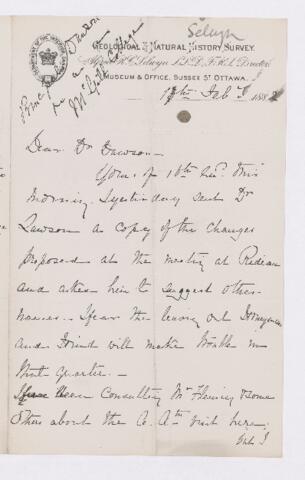 Selwyn
Principal Dawson
McGill College
GEOLOGICAL & NATURAL HISTORY SURVEY.
Alfred R.C. Selwyn LL.D. F.R.S. Director
MUSEUM & OFFICE, SUSSEX ST OTTAWA.
17th Feby 1882
Dear Dr Dawson
Yours of 16th recd. this
morning. I yesterday sent Dr
Lawson a copy of the changes
proposed at the meeting at Rideau
and asked him to suggest other
names. I fear the leaving out
and will make trouble in
that quarter.
I have been consulting Mr Fleming & some
others about the A. Assn visit here;
but I